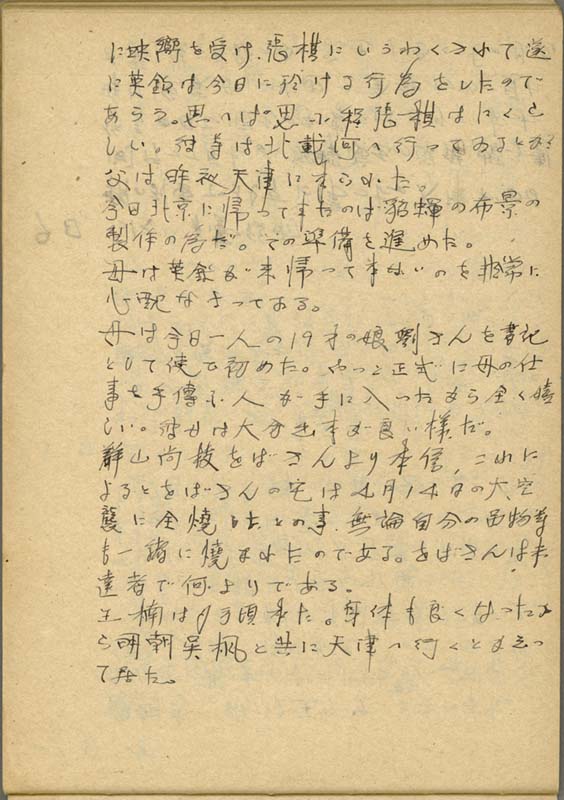 に映響を受け、張棋にいうわくされて遂
に英鈴は今日に於ける行為をしたので
あろう。思へば思ふ程張棋はにくら
しい。彼等は北載河へ行ってゐるとか
父は昨夜天津に来られた。
今日北京に帰って来たのは貂蟬の布景の
製作の為だ。その準備を進めた。
母は英鈴が未帰って来ないのを非常に
心配なさってゐる。
母は今日一人の19才の娘劉さんを書記
として使ひ初めた。やっと正式に母の仕
事を手傳ふ人が手に入ったから全く嬉
しい。彼女は大分出来が良い様だ。
山尚枝をばさんより来信、これに
よるとをばさんの宅は4月14日の大空
襲に全燒したとの事、無論自分の荷物等
も一緒に燒かれたのである。をばさんは未
達者で何よりである。
王楠は夕方頃来た。身体も良くなったか
ら明朝吴楓と共に天津へ行くと云っ
て居た。